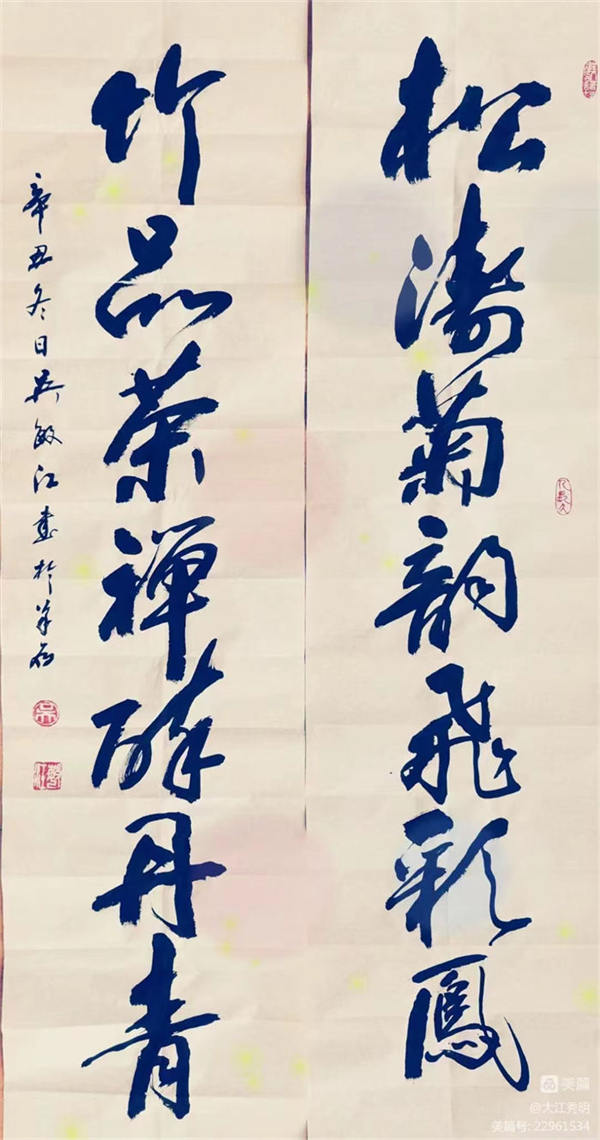 松涛菊韵飞彩凤
竹品茶禅醉丹青
辛丑冬日吴敏江书于羊石
美篇
@大江秀明
美篇号: 22961534